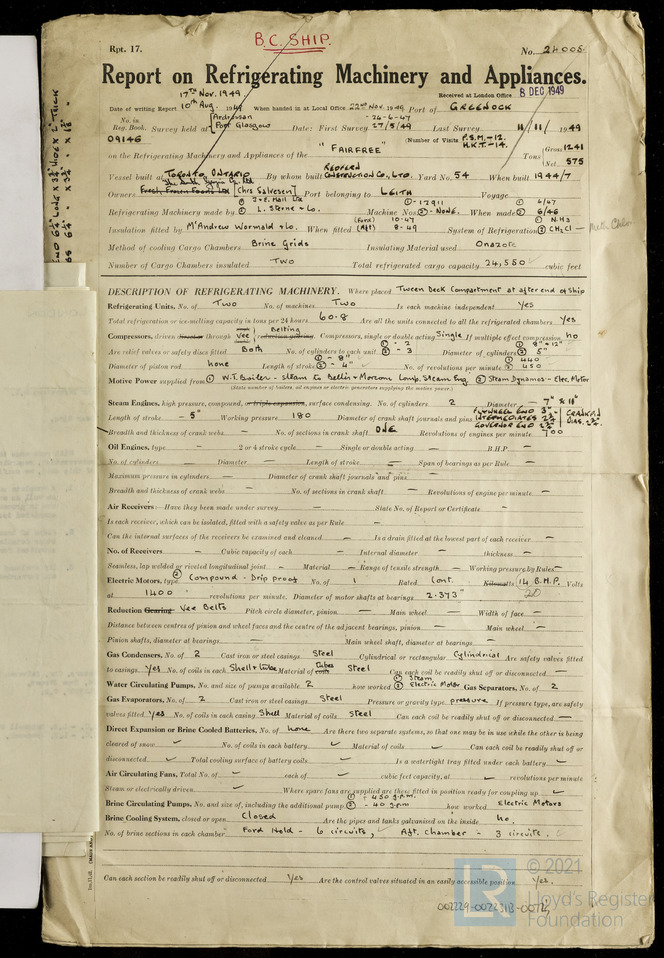 B.C. SHIP.
Rpt. 17.
No. 24005
Report on Refrigerating Machinery and Appliances.
17th Nov. 1949
Received at London Office 8 DEC 1949
Date of writing Report 10th Aug. 1949 When handed in at Local Office 22nd Nov. 1949 Port of GREENOCK
No. in Reg. Book. Survey held at Ardrossan Port Glasgow Date: First Survey 26-6-47 27/5/49 Last Survey 11/11/1949
09146
Number of Visits P.S.M. - 12. H.K.T. - 14.
on the Refrigerating Machinery and Appliances of the "FAIRFREE" Tons Gross 1241 Net 575
Vessel built at TORONTO, ONTARIO By whom built REDFERN CONSTRUCTION CO., LTD. Yard No. 54 When built 1944/7
Owners Fresh Frozen Foods Ltd (Chrs Salvesen) Port belonging to LEITH Voyage
Refrigerating Machinery made by ① J. & E. Hall Ltd ② L. Sterne & Co. Machine Nos. ① - 12911 ② - NONE. When made ① 6/47 ② 6/46
Insulation fitted by McAndrew Wormald & Co. When fitted (Ford) 10-47 (Aft) 8-49 System of Refrigeration ① N.H3 ② CH2Cl - Meth. Chlor.
Method of cooling Cargo Chambers Brine Grids Insulating Material used Onazote
Number of Cargo Chambers insulated Two Total refrigerated cargo capacity 24,550 cubic feet
DESCRIPTION OF REFRIGERATING MACHINERY. Where placed Tween Deck Compartment at after end of Ship
Refrigerating Units, No. of Two No. of machines Two Is each machine independent Yes
Total refrigeration or ice-melting capacity in tons per 24 hours 60.8 Are all the units connected to all the refrigerated chambers Yes
Compressors, driven direct or through Vee Belting reduction gearing. Compressors, single or double acting Single If multiple effect compression no
Are relief valves or safety discs fitted Both No. of cylinders to each unit ① - 2 ② - 3 Diameter of cylinders ① 8" & 12" ② 5"
Diameter of piston rod none Length of stroke ① - 8" ② - 4" No. of revolutions per minute ① 440 ② 450
Motive Power supplied from ① W.T. Boiler - Steam to Bellis & Morcom Comp. Steam Eng. ② Steam Dynamos - Elec. Motor
(State number of boilers, oil engines or electric generators supplying the motive power.)
Steam Engines, high pressure, compound, or triple expansion, surface condensing. No. of cylinders 2 Diameter 7" & 11"
Length of stroke - 5" Working pressure 180 Diameter of crank shaft journals and pins FLYWHEEL END 3" INTERMEDIATES 2¾" GOVERNOR END 2¾" CRANKPIN DIAS. 2¾"
Breadth and thickness of crank webs - No. of sections in crank shaft ONE Revolutions of engines per minute 700
Oil Engines, type - 2 or 4 stroke cycle - Single or double acting - B.H.P. -
No. of cylinders - Diameter - Length of stroke - Span of bearings as per Rule -
Maximum pressure in cylinders - Diameter of crank shaft journals and pins -
Breadth and thickness of crank webs - No. of sections in crank shaft - Revolutions of engine per minute -
Air Receivers:- Have they been made under survey - State No. of Report or Certificate -
Is each receiver, which can be isolated, fitted with a safety valve as per Rule -
Can the internal surfaces of the receivers be examined and cleaned - Is a drain fitted at the lowest part of each receiver -
No. of Receivers - Cubic capacity of each - Internal diameter - thickness -
Seamless, lap welded or riveted longitudinal joint - Material - Range of tensile strength - Working pressure by Rules -
Electric Motors, type ② Compound - Drip proof No. of 1 Rated Cont. Kilowatts 14 B.H.P. Volts 20
at 1400 revolutions per minute. Diameter of motor shafts at bearings 2.373"
Reduction Gearing Vee Belts Pitch circle diameter, pinion - Main wheel - Width of face -
Distance between centres of pinion and wheel faces and the centre of the adjacent bearings, pinion - Main wheel -
Pinion shafts, diameter at bearings - Main wheel shaft, diameter at bearings -
Gas Condensers, No. of 2 Cast iron or steel casings Steel Cylindrical or rectangular Cylindrical Are safety valves fitted
to casings Yes No. of coils in each Shell & tube Material of coils tubes Steel Can each coil be readily shut off or disconnected -
Water Circulating Pumps, No. and size of pumps available 2 how worked ① Steam ② Electric Motor Gas Separators, No. of 2
Gas Evaporators, No. of 2 Cast iron or steel casings Steel Pressure or gravity type pressure If pressure type, are safety
valves fitted Yes No. of coils in each casing Shell Material of coils Steel Can each coil be readily shut off or disconnected -
Direct Expansion or Brine Cooled Batteries, No. of none Are there two separate systems, so that one may be in use while the other is being
cleared of snow ✓ No. of coils in each battery ✓ Material of coils ✓ Can each coil be readily shut off or
disconnected ✓ Total cooling surface of battery coils ✓ Is a watertight tray fitted under each battery ✓
Air Circulating Fans, Total No. of ✓ each of ✓ cubic feet capacity, at ✓ revolutions per minute
Steam or electrically driven ✓ Where spare fans are supplied are these fitted in position ready for coupling up ✓
Brine Circulating Pumps, No. and size of, including the additional pump ① - 450 g.p.m. ② - 40 g.p.m how worked Electric Motors
Brine Cooling System, closed or open Closed Are the pipes and tanks galvanised on the inside no.
No. of brine sections in each chamber Ford Hold - 6 circuits, Aft. Chamber - 3 circuits.
Can each section be readily shut off or disconnected Yes Are the control valves situated in an easily accessible position Yes.
© 2021
LR Lloyd's Register
Foundation
002229-002231B-0072